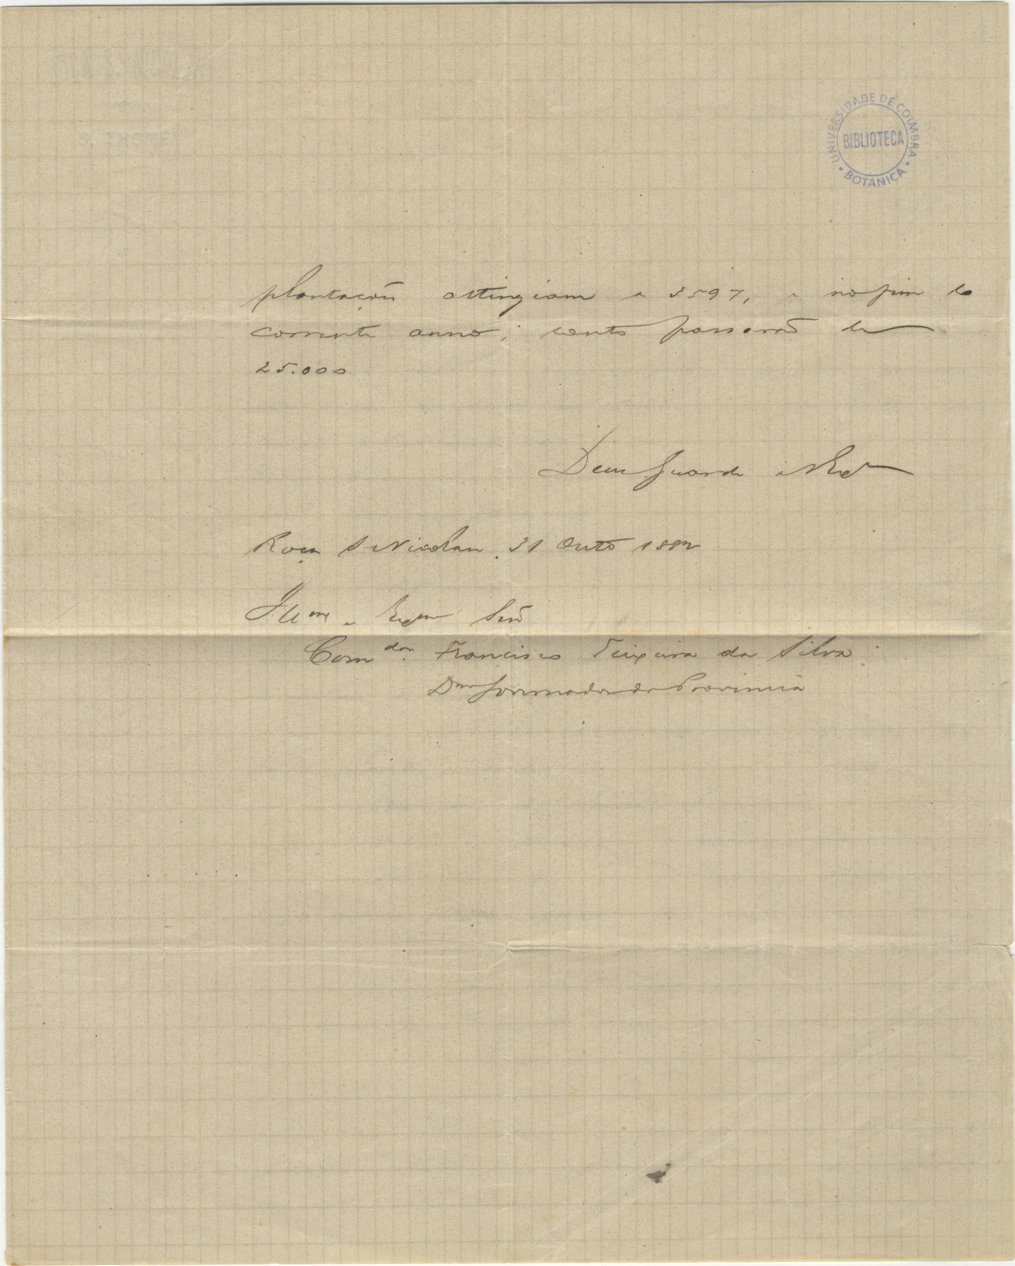 UNIVERSIDADE DE COIMBRA
BIBLIOTECA
BOTANICA
plantações attingiam a 3597, e no fim do
corrente anno, conto passarão de
25.000
Deus Guarde a V Exª
Roça S Nicolau 31 Outº 1882
Illmo e Exmo Snr
Comdor Francisco Teixeira da Silva
Dmo Governador da Provincia